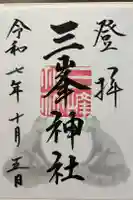 登拝
三峯神社
令和七年十月五日